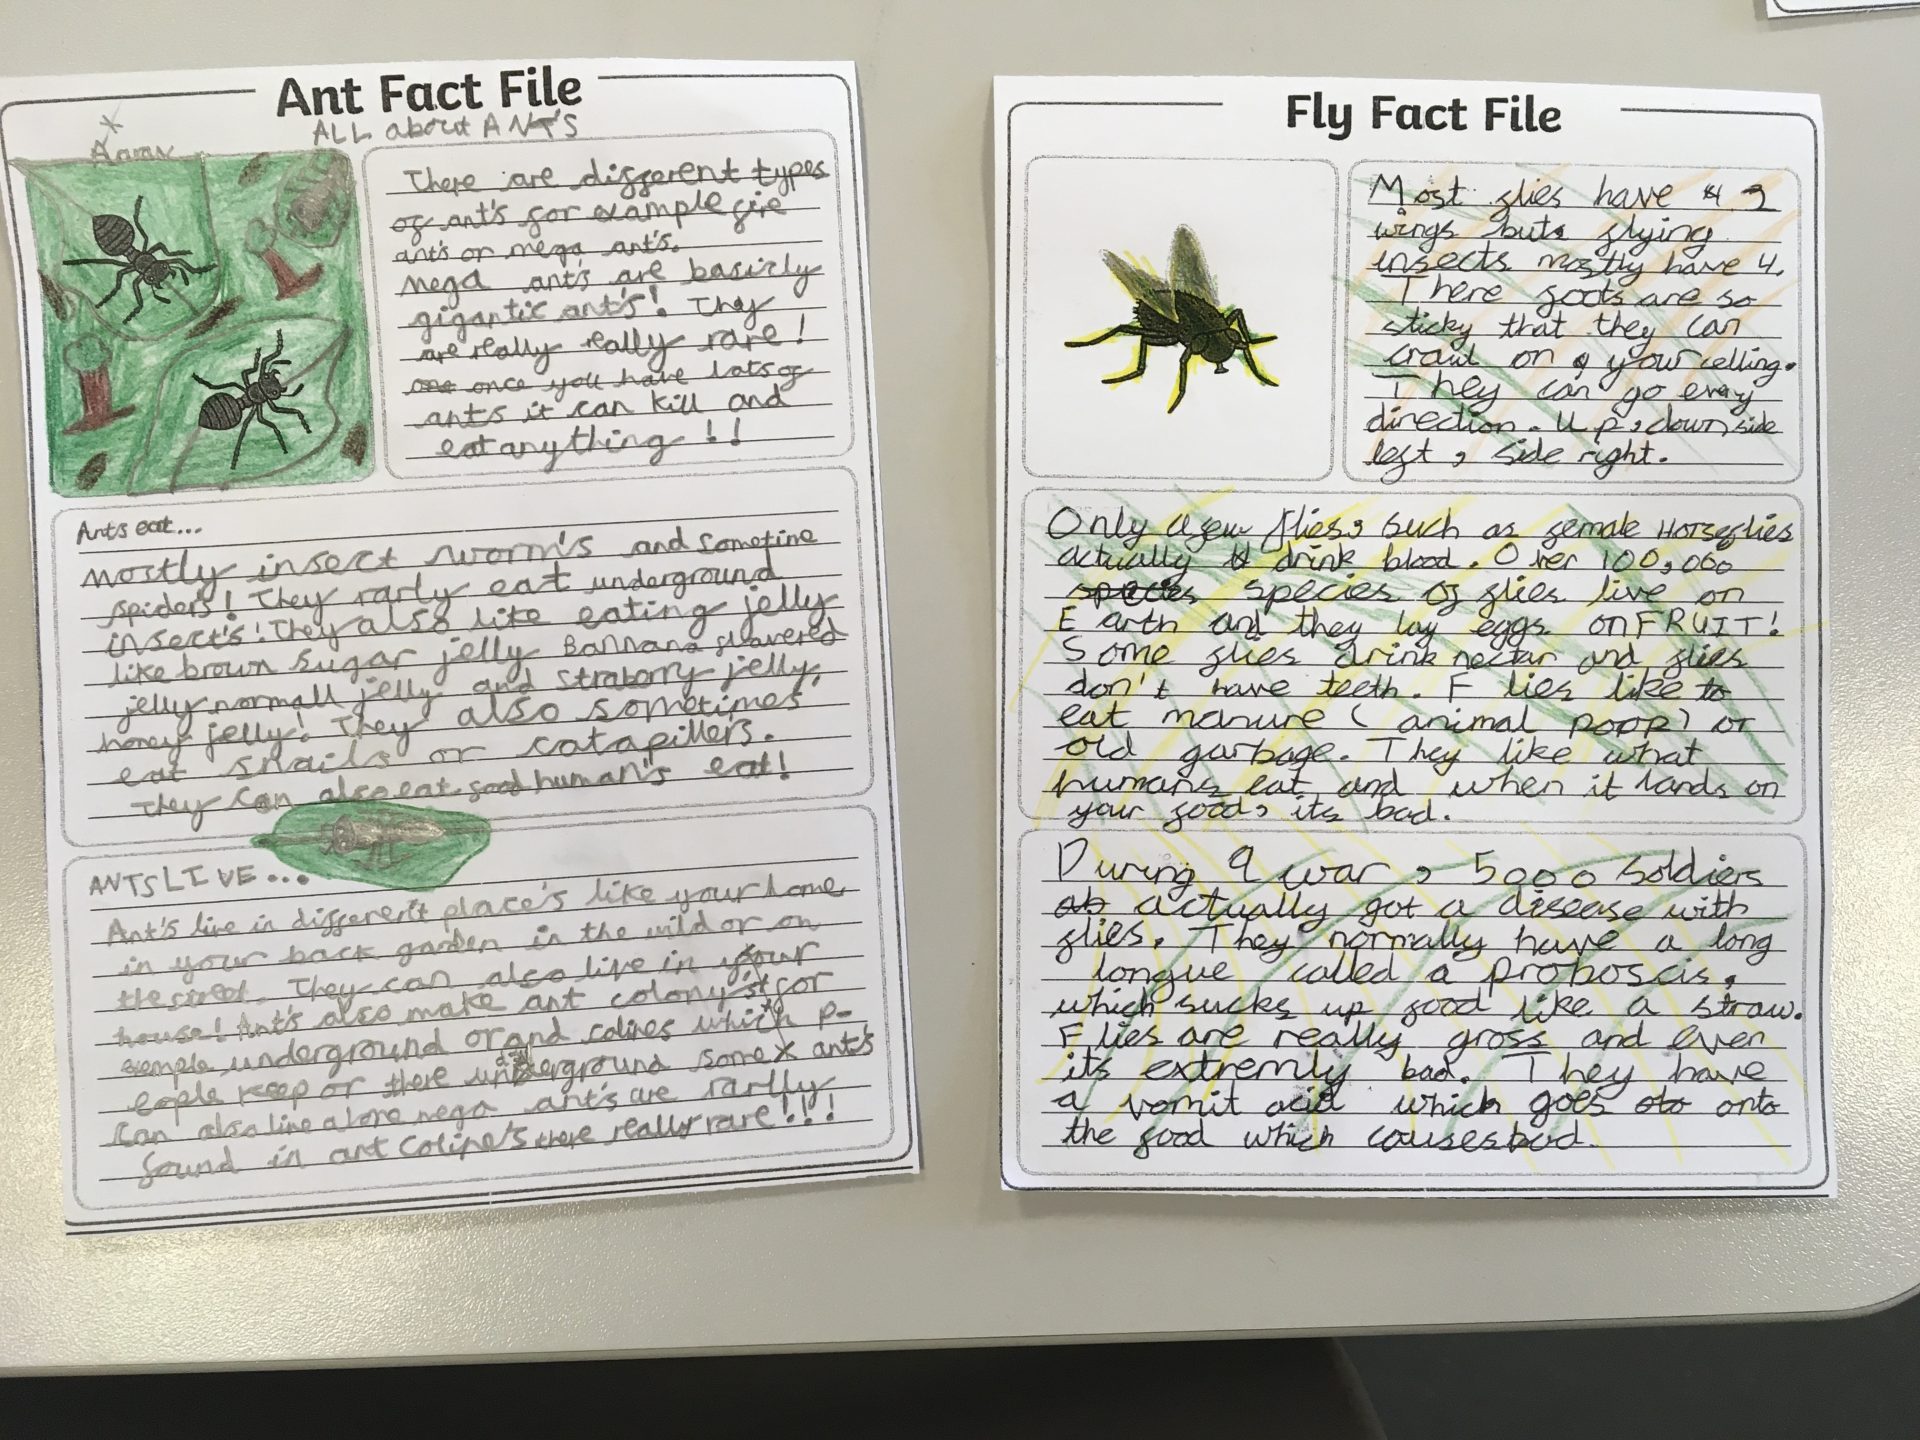 Ant Fact File
ALL about ANT'S
There are different types
of ant's for example fire
ant's or mega ant's.
mega ant's are basicly
gigantic ant's! They
are really really rare!
once you have lots of
ants it can kill and
eat anything!!
Ants eat...
mostly insect worm's and sometine
spiders! They rarly eat underground
insect's! They also like eating jelly
like brown sugar jelly Bannana flavered
jelly normall jelly and straborry jelly,
honey jelly! They also sometimes
eat snails or catapiller's.
They can also eat food human's eat!
ANTS LIVE...
Ant's live in different place's like your home
in your back garden in the wild or on
the street. They can also live in your
house! Ant's also make ant colony's for
exemple underground or and colines which p-
eople keep or there underground some ant's
can also live alone mega ant's are rarlly
found in ant coline's there really rare!!!
Fly Fact File
Most flies have 2
wings but flying
insects mostly have 4.
There foots are so
sticky that they can
crawl on your celling.
They can go every
direction. Up, down side
left, side right.
Only a few flies, such as female Horseflies
actually drink blood. Over 100,000
species species of flies live on
Earth and they lay eggs on FRUIT!
Some flies drink nectar and flies
don't have teeth. Flies like to
eat manure (animal poop) or
old garbage. They like what
humans eat and when it lands on
your food, its bad.
During a war, 5000 soldiers
actually got a disease with
flies. They normally have a long
tongue called a proboscis,
which sucks up food like a straw.
Flies are really gross and even
its extremly bad. They have
a vomit acid which goes onto
the food which couses bad.